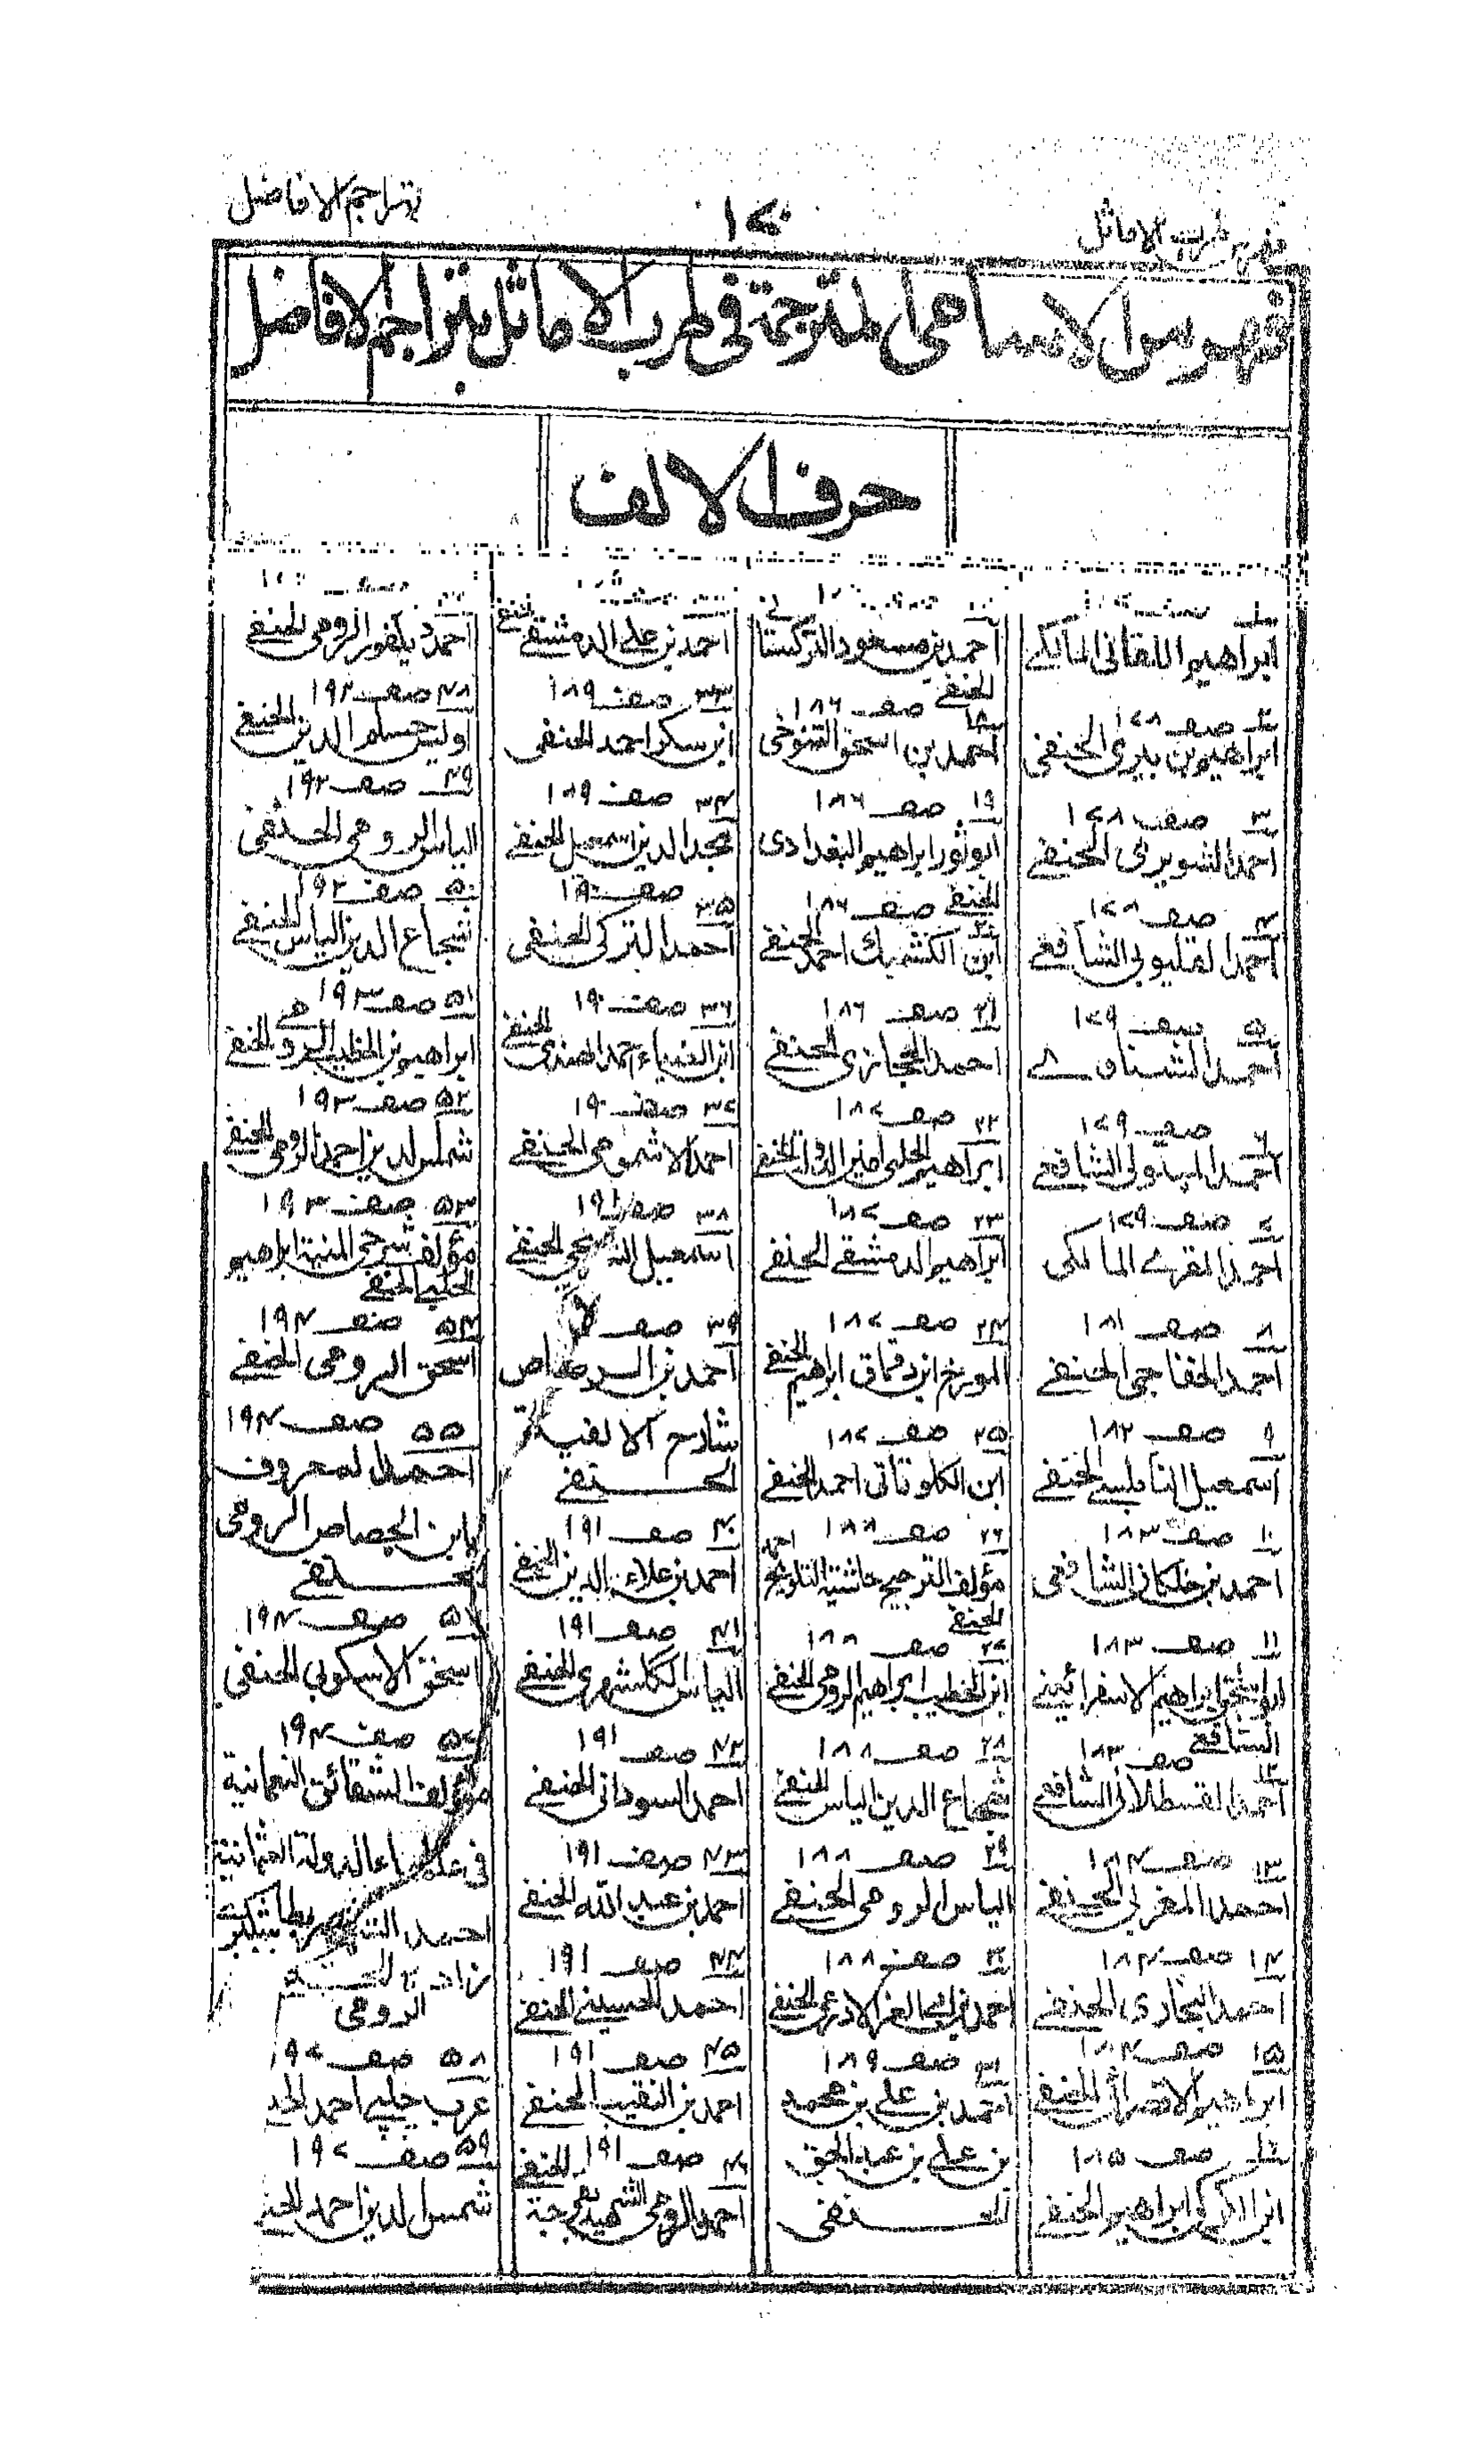 فهرس طرب الاماثل
١٧٠
بتراجم الافاضل
فهرس الاسامى المترجمة فى طرب الاماثل بتراجم الافاضل
حرف الالف
ابراهيم اللقانى المالكے
٢ صفـ ١٧٨
ابراهيم بن بيرى الحنفى
٣ صفـ ١٧٨
احمد الشوبرى الحنفے
٤ صفـ ١٧٨
احمد القليوبى الشافعے
٥ صفـ ١٧٩
احمد الشناوے
٦ صفـ ١٧٩
احمد الشافعے
٧ صفـ ١٧٩
احمد المقرے المالكى
٨ صفـ ١٨١
احمد الخفاجى الحنفے
٩ صفـ ١٨٢
اسمعيل النابلسے الحنفے
١٠ صفـ ١٨٣
احمد بن خلكان الشافعى
١١ صفـ ١٨٣
ابو اسحق ابراهيم الاسفرائينے
الشافعے صفـ ١٨٣
١٢
احمد القسطلانى الشافعے
١٣ صفـ ١٨٤
احمد المغربى الحنفے
١٤ صفـ ١٨٤
احمد البخارى الحنفے
١٥ صفـ ١٨٤
ابراهيم الاقصرائى الحنفے
١٦ صفـ ١٨٥
ابن الكركى ابراهيم الحنفے
احمد بن مسعود التركستانے
الحنفے صفـ ١٨٦
١٨
احمد بن اسحق التنوخى
١٩ صفـ ١٨٦
ابو ثور ابراهيم البغدادى
الحنفے صفـ ١٨٦
٢٠
ابن الكشك احمد الحنفے
٢١ صفـ ١٨٦
احمد الحجازى الحنفے
٢٢ صفـ ١٨٧
ابراهيم الحلبى امين الدولة الحنفے
٢٣ صفـ ١٨٧
ابراهيم الدمشقے الحنفے
٢٤ صفـ ١٨٧
المورخ ابن دقماق ابراهيم الحنفے
٢٥ صفـ ١٨٧
ابن الكلوتاتى احمد الحنفے
٢٦ صفـ ١٨٨
مؤلف الترجيح حاشية التلويح احمد
الحنفے
٢٧ صفـ ١٨٨
ابن الخطيب ابراهيم الرومى الحنفے
٢٨ صفـ ١٨٨
شجاع الدين الياس الحنفے
٢٩ صفـ ١٨٨
الياس الرومى الحنفے
٣٠ صفـ ١٨٨
احمد بن ابى العز الاذرعى الحنفے
٣١ صفـ ١٨٩
احمد بن على بن محمد
بن على بن عبد الحق
الحنفى
احمد بن على الدمشقے الحنفے
٣٣ صفـ ١٨٩
ابن سكر احمد الحنفى
٣٤ صفـ ١٨٩
مجد الدين اسمعيل الحنفے
٣٥ صفـ ١٩٠
احمد التركى الحنفى
٣٦ صفـ ١٩٠
ابن الضياء احمد الحنفے
٣٧ صفـ ١٩٠
احمد الاشمومى الحنفے
٣٨ صفـ
اسمعيل الحنفے
٣٩ صفـ
احمد بن السرماص
شارح الالفية
الحنفے
٤٠ صفـ ١٩١
احمد بن علاء الدين الحنفے
٤١ صفـ ١٩١
الياس الكلشهرى الحنفے
٤٢ صفـ ١٩١
احمد السودانى الحنفے
٤٣ صفـ ١٩١
احمد بن عبد الله الحنفے
٤٤ صفـ ١٩١
احمد الحسينے الحنفے
٤٥ صفـ ١٩١
احمد بن النقيب الحنفے
٤٦ صفـ ١٩١
احمد الرومى الشهير بقرجة الحنفے
احمد ديكقوز الرومى الحنفے
٤٨ صفـ ١٩٢
اويس حسام الدين الحنفے
٤٩ صفـ ١٩٢
الياس الرومى الحنفى
٥٠ صفـ ١٩٢
شجاع الدين الياس الحنفے
٥١ صفـ ١٩٣
ابراهيم بن الخطيب الرومى الحنفے
٥٢ صفـ ١٩٣
شمس الدين احمد الرومى الحنفے
٥٣ صفـ ١٩٣
مؤلف شرحى المنية ابراهيم
الحلبى الحنفے
٥٤ صفـ ١٩٤
اسحق الرومى الحنفے
٥٥ صفـ ١٩٤
احمد المعروف
بابن الجصاص الرومى
الحنفے
٥٦ صفـ ١٩٤
اسحق الاسكوبى الحنفى
٥٧ صفـ ١٩٤
مؤلف الشقائق النعمانية
فى علماء الدولة العثمانية
احمد الشهير بطاشكبرے
زاده الحنفے
الرومى
٥٨ صفـ ١٩٧
عرب چلبے احمد
٥٩ صفـ ١٩٧
شمس الدين احمد